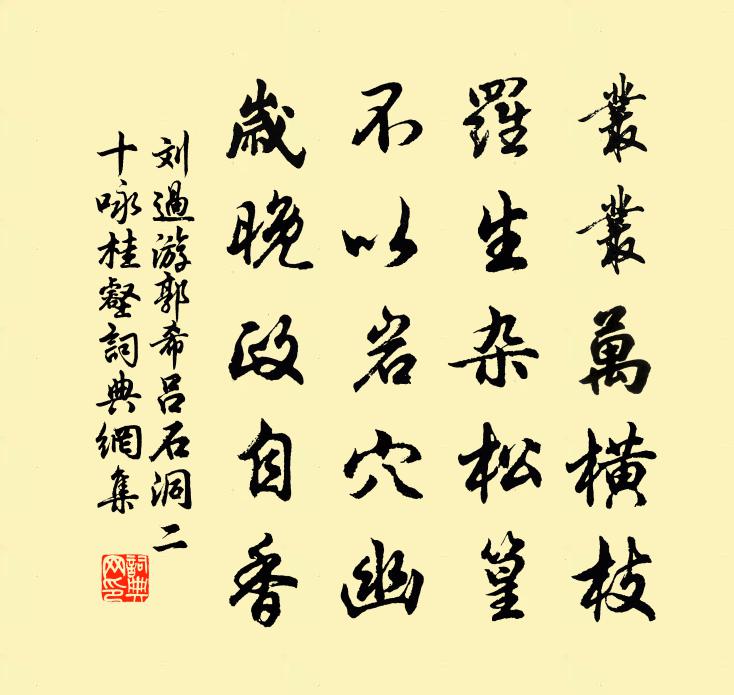 叢叢萬橫枝
羅生杂松篁
不以岩穴幽
歲晚政自香
刘過游郭希呂石洞二
十咏桂壑詞典網集
詞典网印